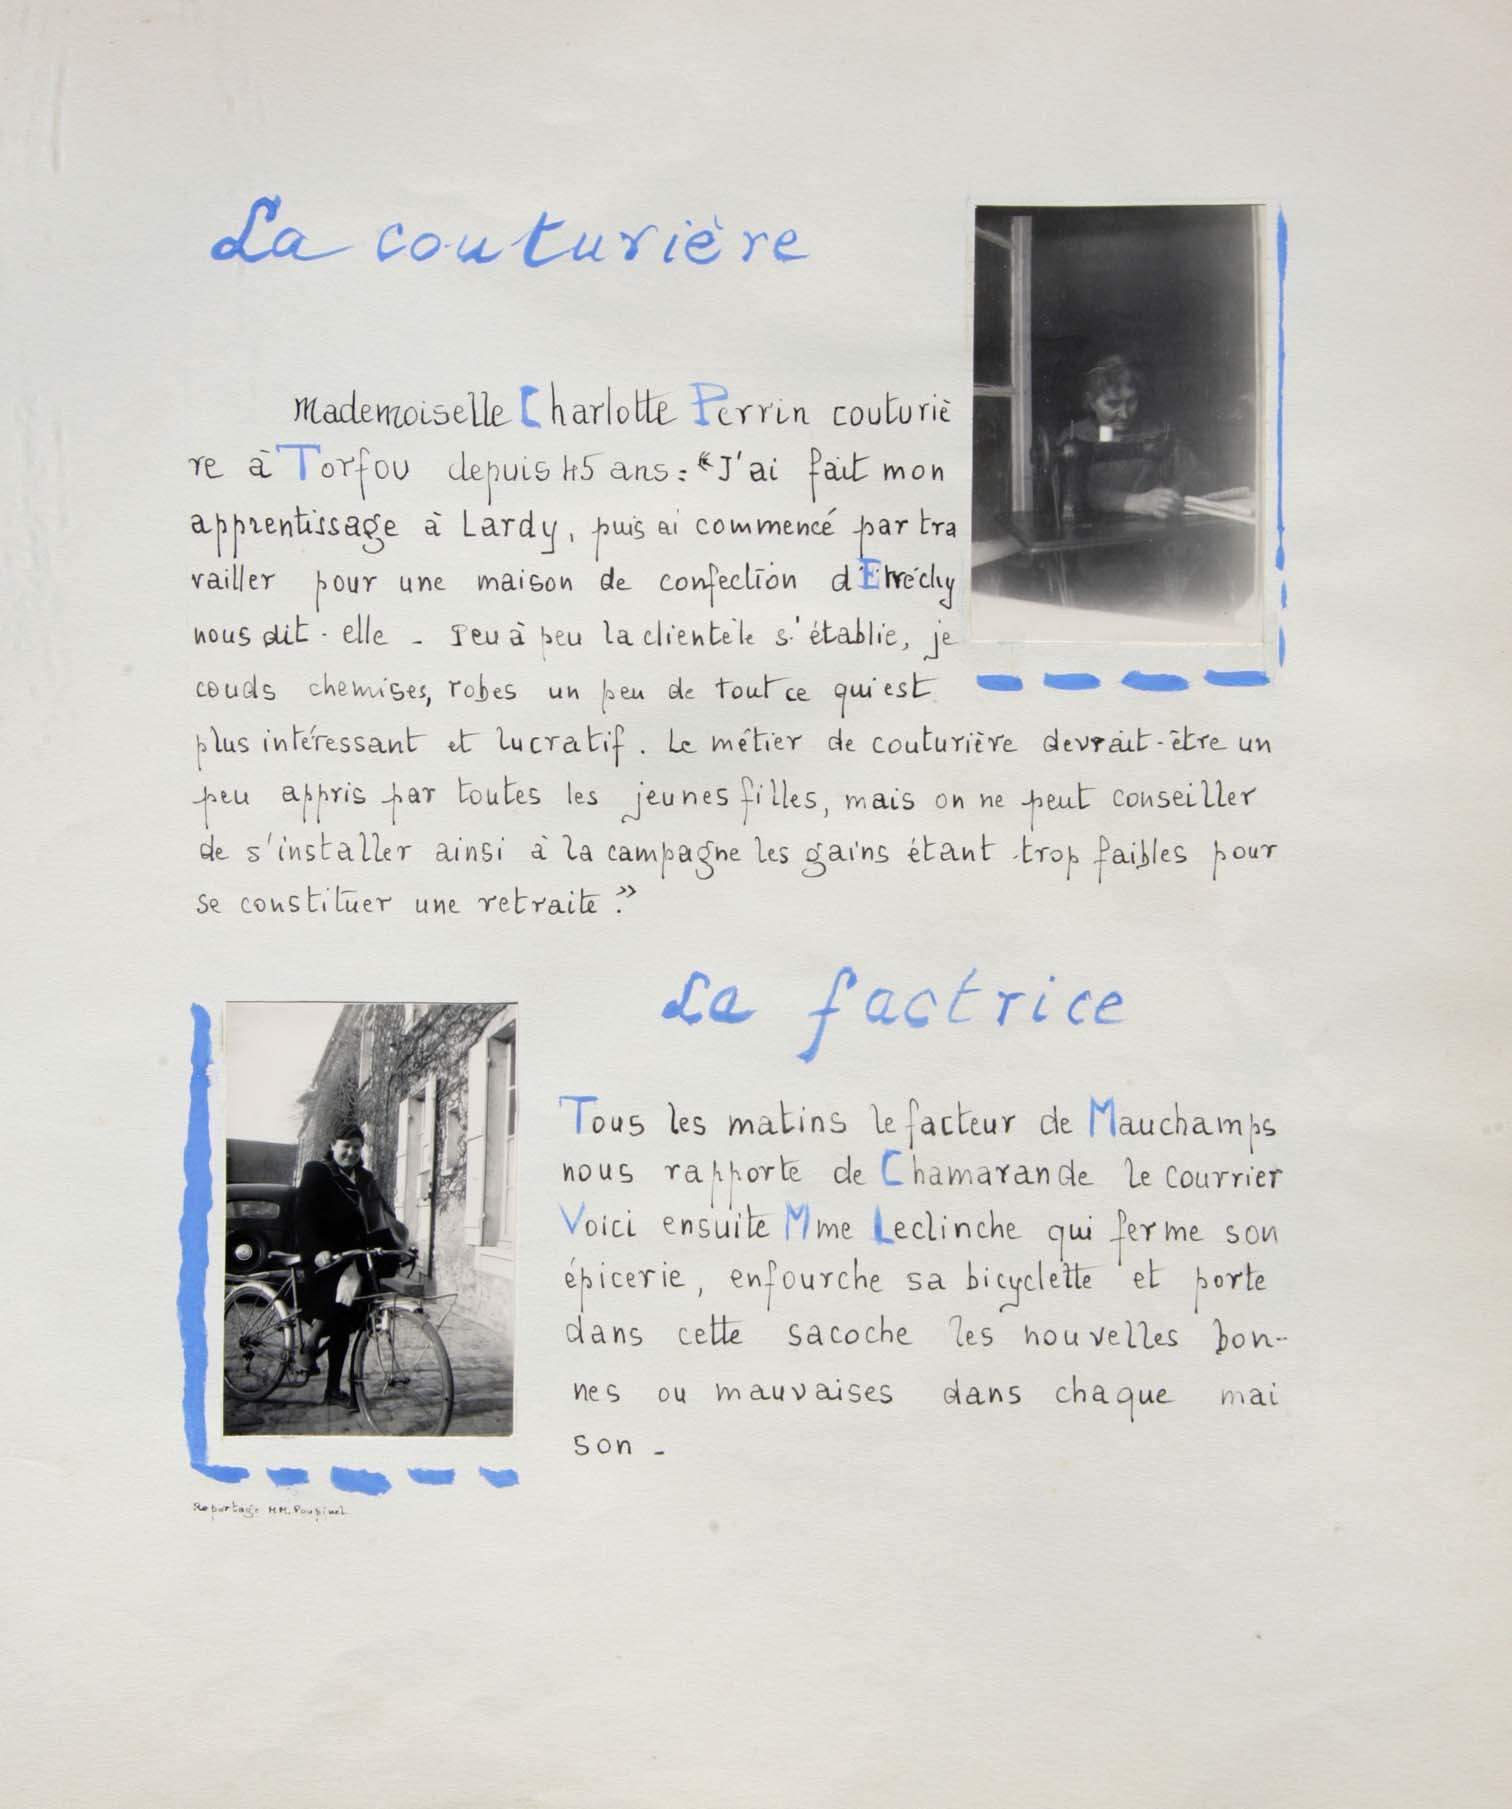 La couturière
Mademoiselle Charlotte Perrin couturiè
re à Torfou depuis 45 ans : "J'ai fait mon
apprentissage à Lardy, puis ai commencé par tra
vailler pour une maison de confection d'Etréchy
nous dit-elle - Peu à peu la clientèle s'établie, je
couds chemises, robes un peu de tout ce qui est
plus intéressant et lucratif. Le métier de couturière devrait-être un
peu appris par toutes les jeunes filles, mais on ne peut conseiller
de s'installer ainsi à la campagne les gains étant trop faibles pour
se constituer une retraite."
La factrice
Tous les matins le facteur de Mauchamps
nous rapporte de Chamarande le courrier
Voici ensuite Mme Leclinche qui ferme son
épicerie, enfourche sa bicyclette et porte
dans cette sacoche les nouvelles bon-
nes ou mauvaises dans chaque mai
son -
Reportage MM. Poupinel